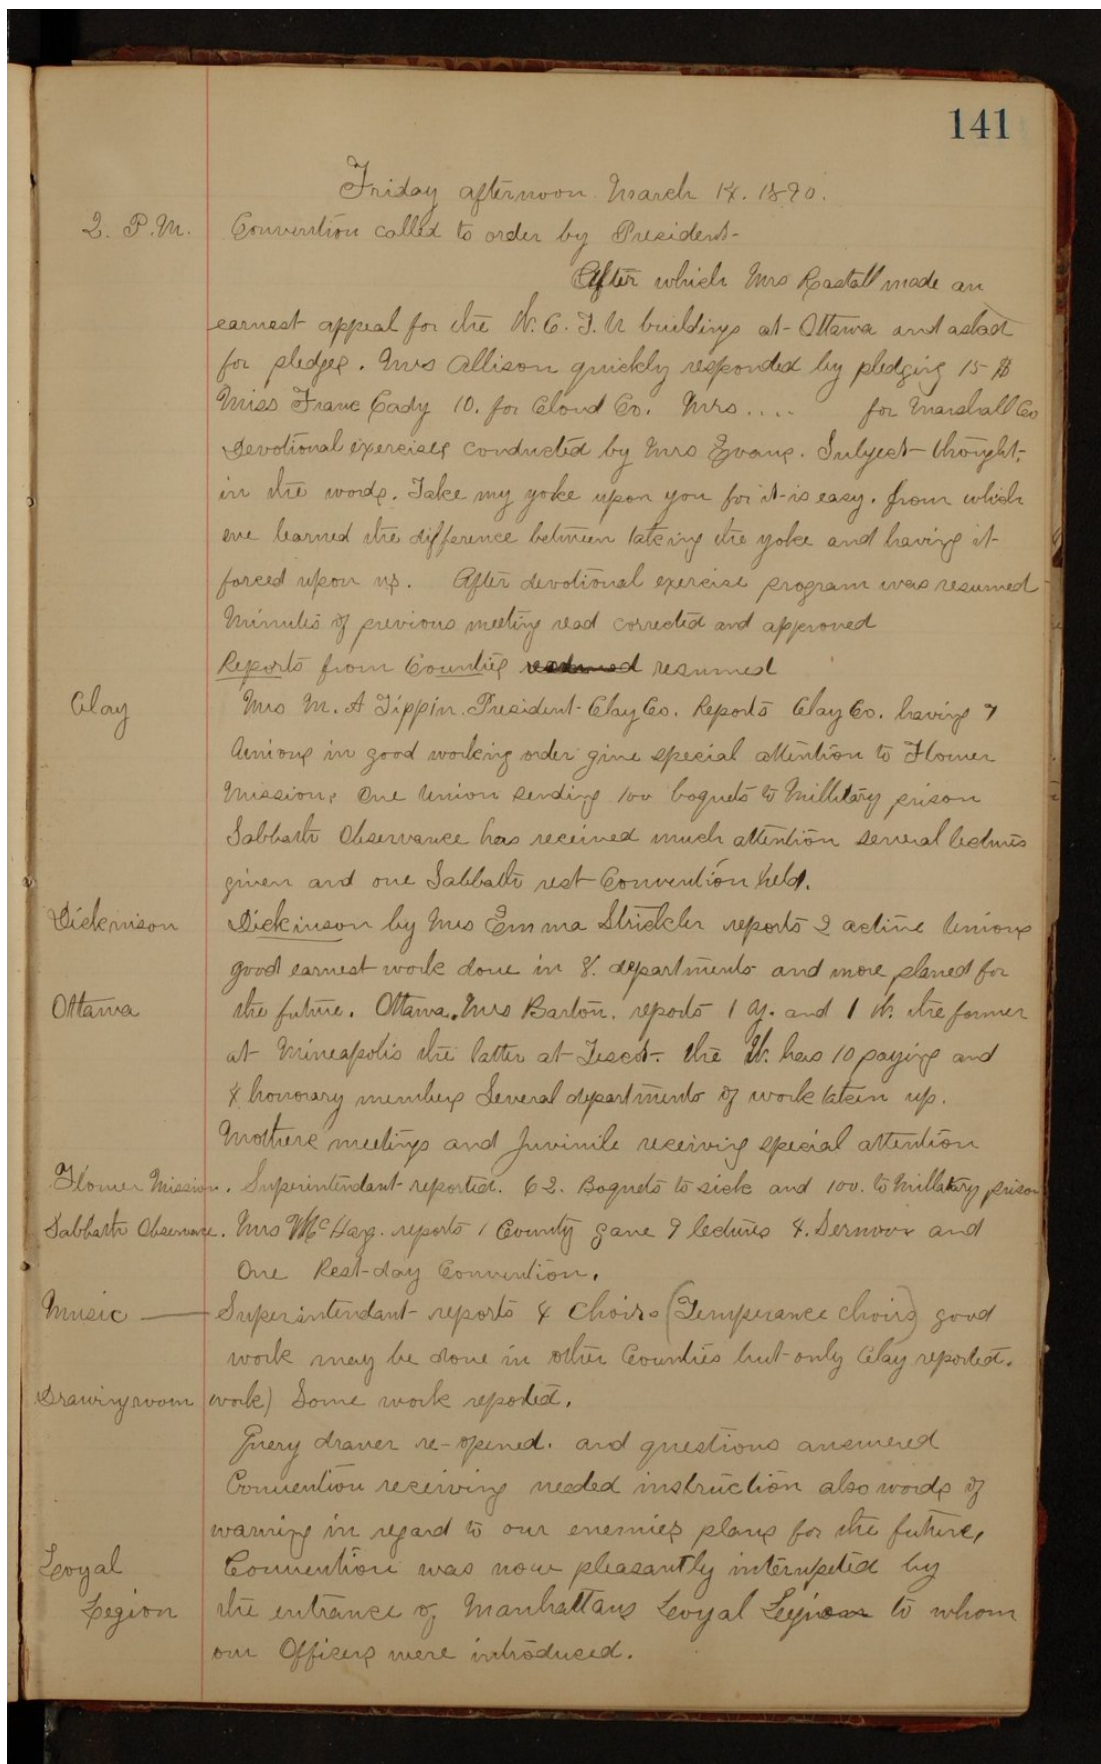 141
Friday afternoon March 14. 1890.
2. P.M. Convention called to order by President-
After which Mrs Rastall made an
earnest appeal for the W. C. T. U buildings at Ottawa and asked
for pledges. Mrs Allison quickly responded by pledging 15 $
Miss Franc Cady 10. for Cloud Co. Mrs .... for Marshall Co
Devotional exercises conducted by Mrs Evans. Subject thought,
in the words. Take my yoke upon you for it is easy. from which
we learned the difference between taking the yoke and having it
forced upon us. After devotional exercise program was resumed
Minutes of previous meeting read corrected and approved
Reports from Counties resumed
Clay Mrs M. A Tippin. President Clay Co. Reports Clay Co. having 7
Unions in good working order give special attention to Flower
Mission, One Union sending 100 boquets to Millitary prison
Sabbath Observance has received much attention several lectures
given and one Sabbath rest Convention held.
Dickinson Dickinson by Mrs Emma Strickler reports 2 active Unions
good earnest work done in 8. departments and more planed for
Ottawa the future. Ottawa. Mrs Barton. reports 1 Y. and 1 W. the former
at Mineapolis the latter at Tescot. the W. has 10 paying and
4 honorary members Several departments of work taken up.
Mothers meetings and juvinile receiving special attention
Flower Mission. Superintendant reported. 62. Boquets to sick and 100. to Millatary prison
Sabbath Observance. Mrs McHarg. reports 1 County gave 9 lectures 4. Sermons and
One Rest-day Convention.
Music — Superintendant reports 4 Choirs (Temperance choirs) good
work may be done in other Counties but only Clay reported.
Drawing room work) Some work reported.
Query drawer re-opened. and questions answered
Convention receiving needed instruction also words of
warning in regard to our enemies plans for the future,
Loyal Convention was now pleasantly interupted by
Legion the entrance of Manhattans Loyal Legion to whom
our Officers were introduced.